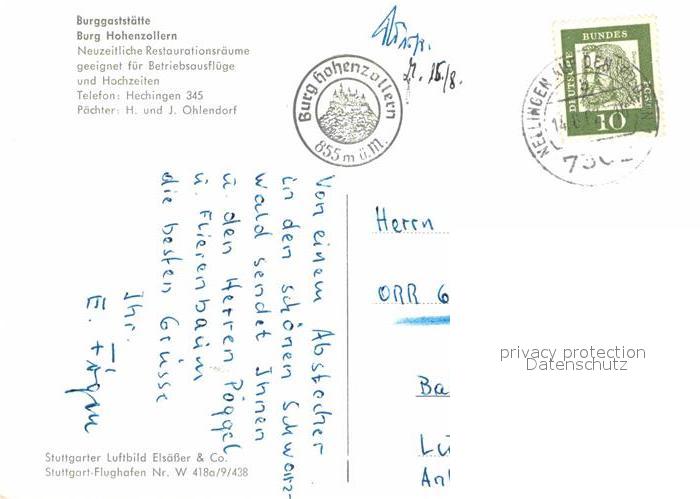 Burggaststätte
Burg Hohenzollern
Neuzeitliche Restaurationsräume
geeignet für Betriebsausflüge
und Hochzeiten
Telefon: Hechingen 345
Pächter: H. und J. Ohlendorf
Burg Hohenzollern
855 m ü.M.
DEUTSCHE BUNDES
10
NELLINGEN AUF DEN
14.
Von einem Abstecher
in den schönen Schwarz-
wald sendet Ihnen
u. den Herren Pöggel
u. Flierenbaum
die besten Grüsse
Ihr
E.
Herrn
ORR G
Ba
Lü
An
privacy protection
Datenschutz
Stuttgarter Luftbild Elsäßer & Co.
Stuttgart-Flughafen Nr. W 418a/9/438